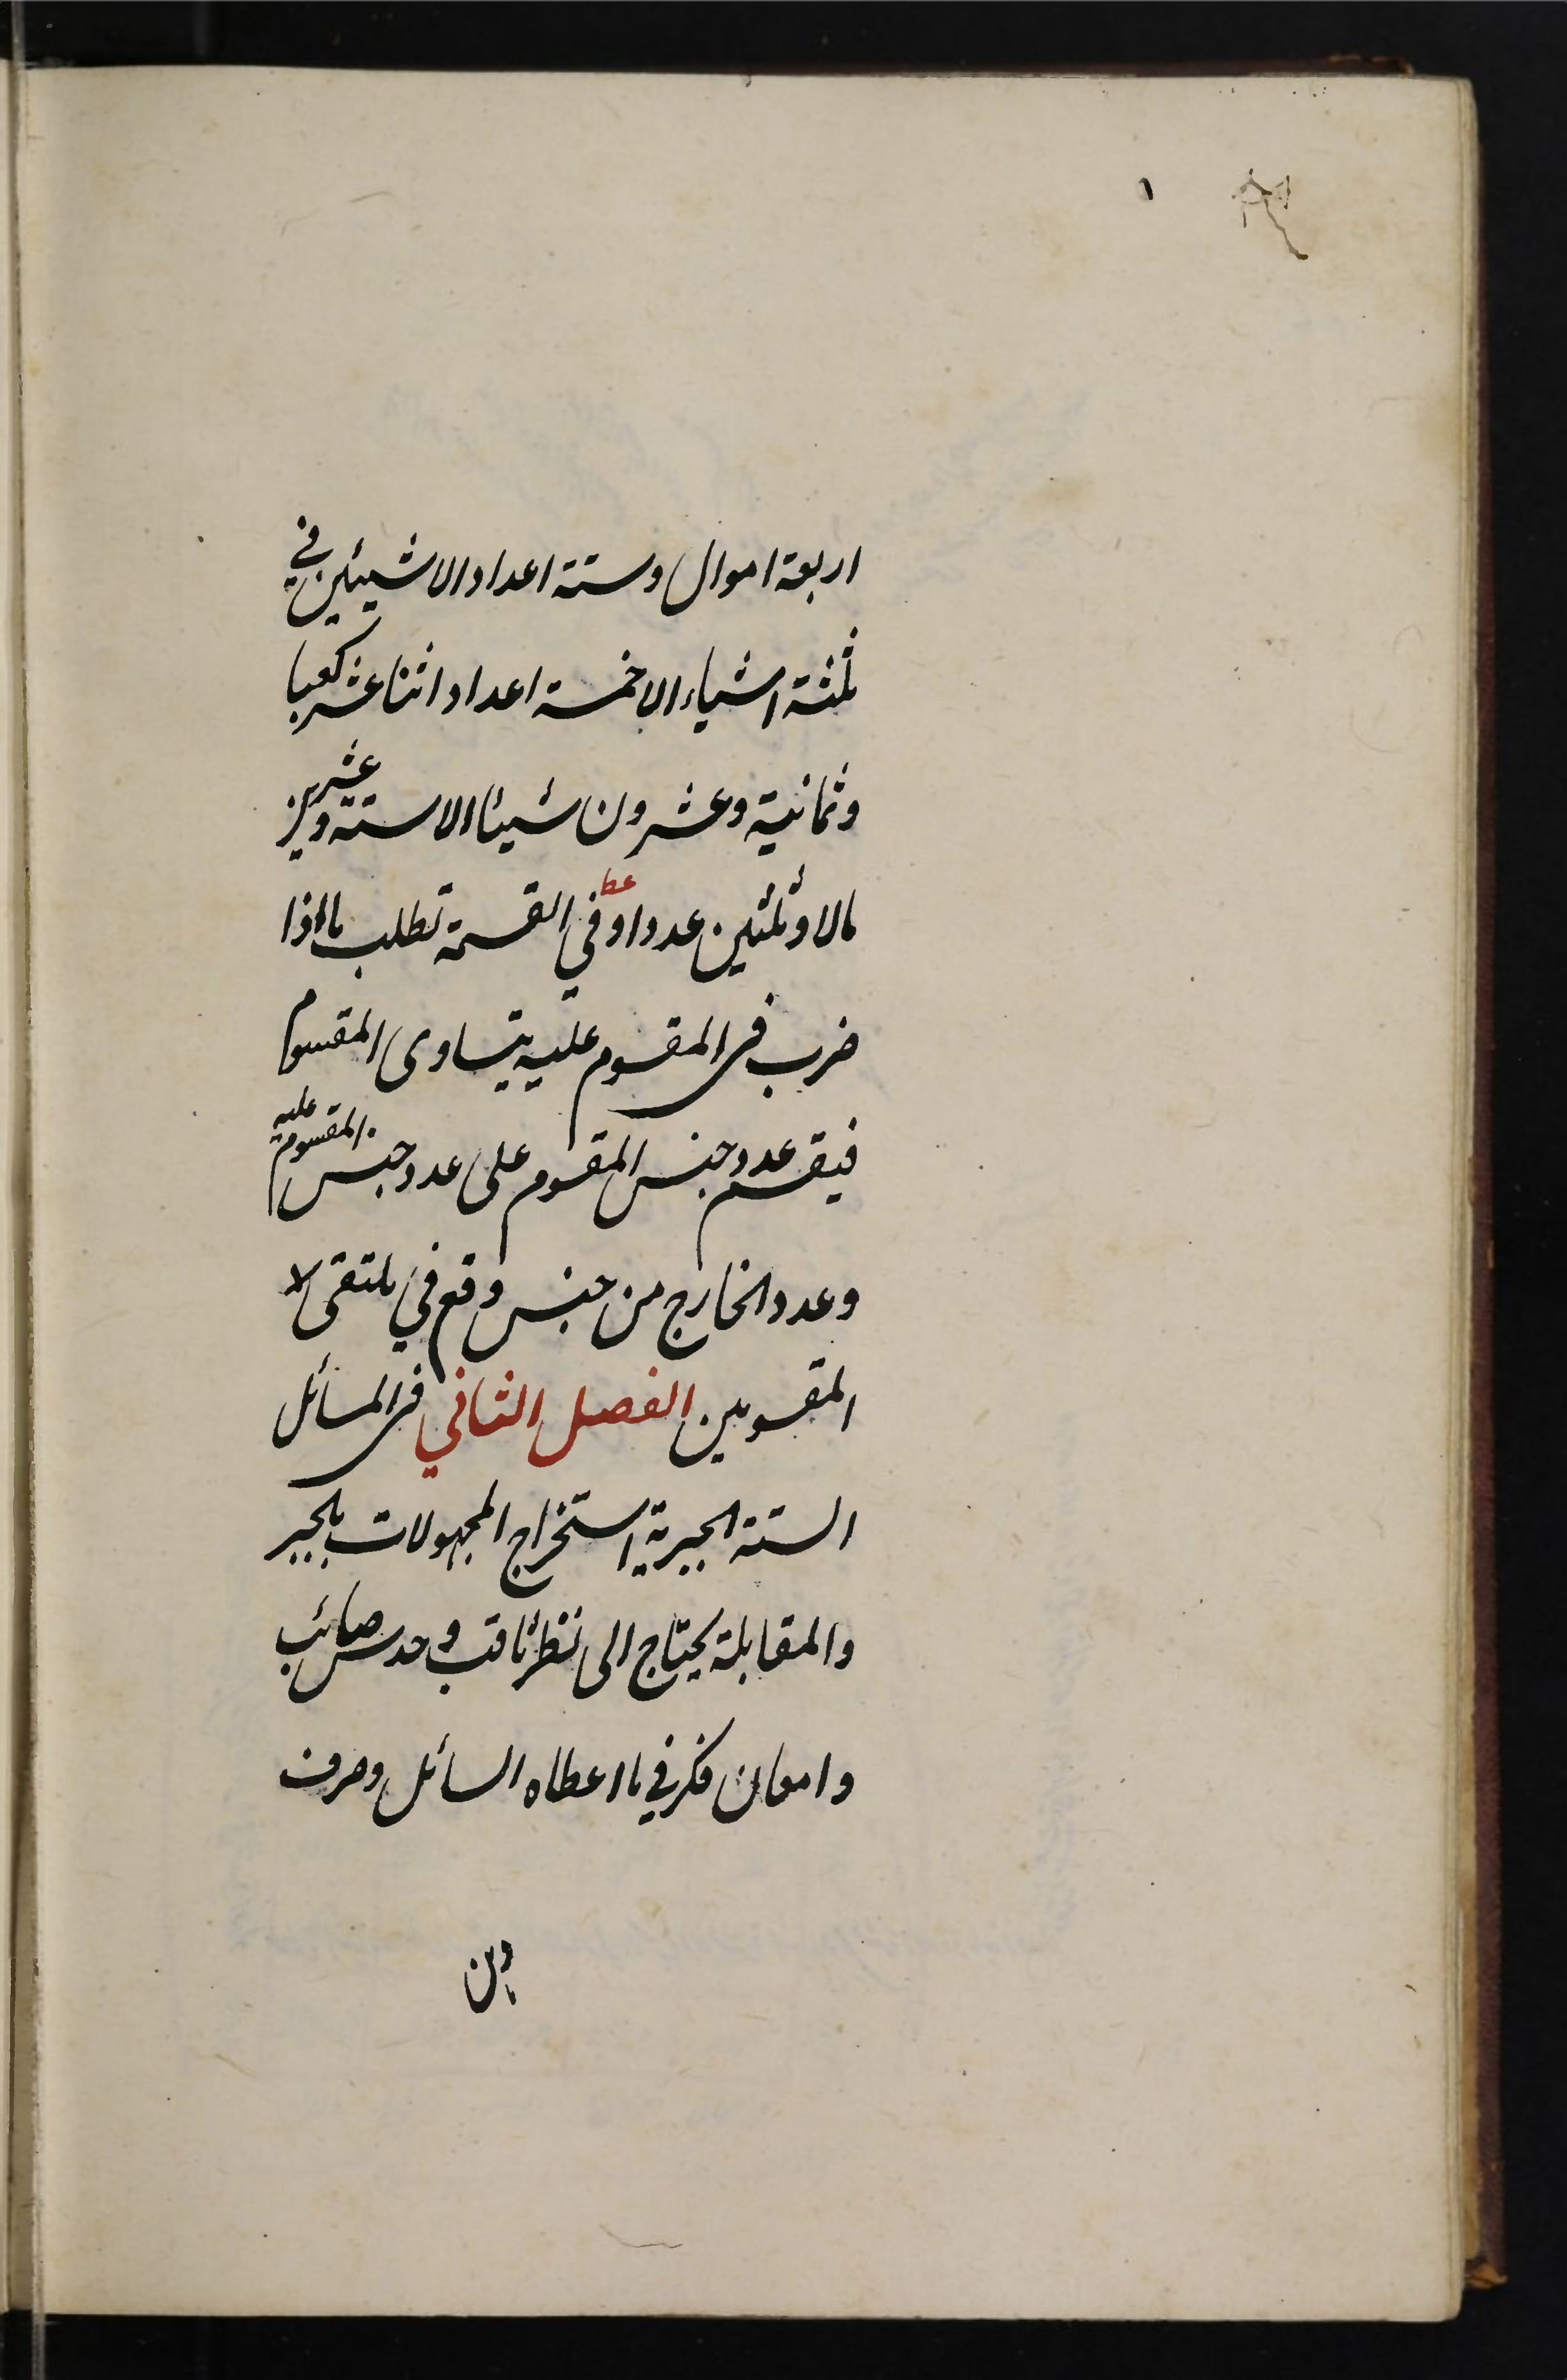 اربعة اموال وستة اعداد الا شيئين في
ثلثة اشياء الا خمسة اعداد اثنا عشر كعبا
وثمانية وعشرون شيئا الا ستة وعشرين
مالا وثلثين عددا وفي القسمة تطلب ما اذا
ضرب في المقسوم عليه يتساوى المقسوم
فيقسم عدد جنس المقسوم على عدد جنس المقسوم عليه
وعدد الخارج من جنس وقع في ملتقى
المقسومين الفصل الثاني في المسائل
الستة الجبرية استخراج المجهولات بالجبر
والمقابلة يحتاج الى نظر ثاقب وحدس صائب
وامعان فكر في ما اعطاه السائل وصرف